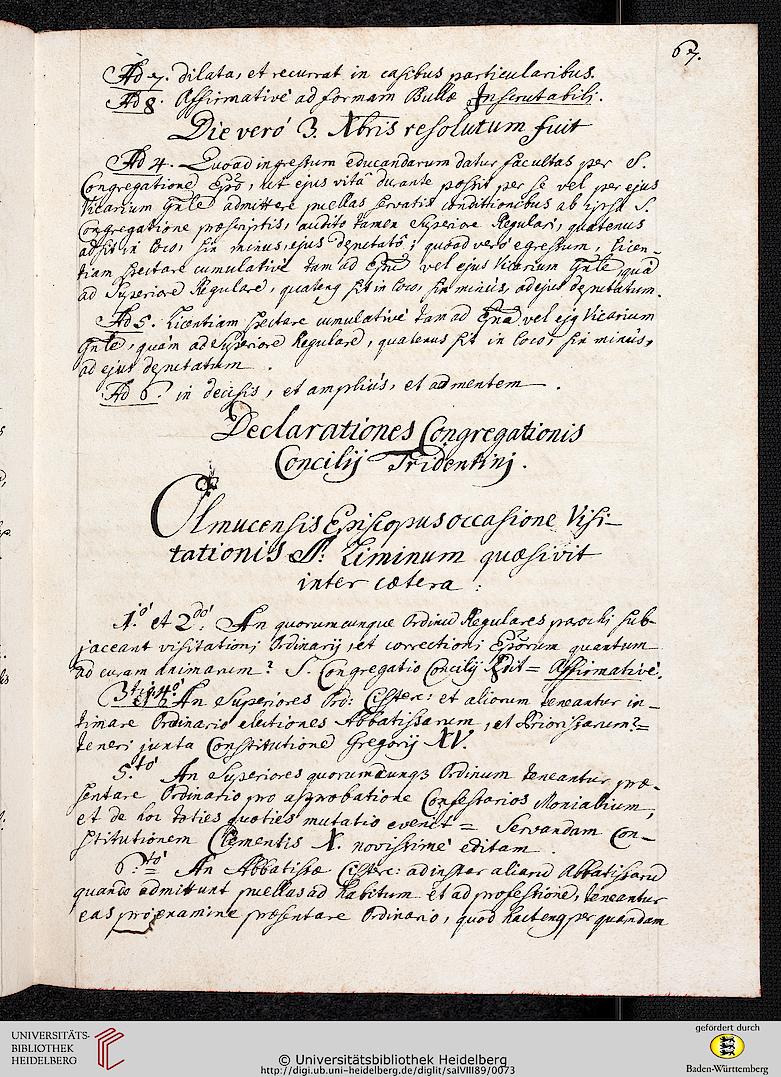 67.
Ad 7. dilata, et recurrat in casibus particularibus.
Ad 8. Affirmativè ad formam Bullæ Inscrutabili.
Die verò 3. Xbris resolutum fuit
Ad 4. Quoad ingressum educandarum datur facultas per S.
Congregatione Epo, ut ejus vitâ durante possit per se vel per ejus
Vicarium Gnle admittere puellas servatis conditionibus ab ipsa S.
Congregatione præscriptis, audito tamen Superiore Regulari, quatenus
adsit in loco, sin minus, ejus deputatô; quoad verò egressum, licen-
tiam spectare cumulativè tam ad Epu vel ejus Vicarium Gnle, quà
ad Superiore Regulare, quateng sit in loco, sin minus, ad ejus deputatum.
Ad 5. Licentiam spectare cumulativè tam ad vel ejg Vicarium
Gnle, quàm ad Superiore Regulare, quatenus sit in loco, sin minùs,
ad ejus deputatum.
Ad 6. in decisis, et ampliùs, et ad mentem.
Declarationes Congregationis
Concilij Tridentinj.
Olmucensis Episcopus occasione Visi-
tationis SS: Liminum quæsivit
inter cætera:
1.º et 2.do An quorumcunque Ordinu Regulares parochi sub-
jaceant visitationj Ordinarij, et correctionj Eporum quantum
ad curam animarum? S. Congregatio Concilij = Affirmativè.
3tiò et 4tò An Superiores Ord: Cisterc: et aliorum teneantur in-
timare Ordinario electiones Abbatissarum, et Priorissarum? =
teneri juxta Constitutione Gregorij XV.
5.tò An Superiores quorumcunq3 Ordinum teneantur præ-
sentare Ordinario pro approbatione Confessarios Monialium,
et de hoc toties quoties mutatio evenit = Servandam Con-
stitutionem Clementis X. novissimè editam.
6.tò An Abbatissæ Cisterc: ad instar aliaru Abbatissaru
quando admittunt puellas ad habitum et ad professione, teneantur
eas prò examine præsentare Ordinario, quod hacteng per quandam
UNIVERSITÄTS-
BIBLIOTHEK
HEIDELBERG
© Universitätsbibliothek Heidelberg
http://digi.ub.uni-heidelberg.de/diglit/salVIII89/0073
gefördert durch
Baden-Württemberg